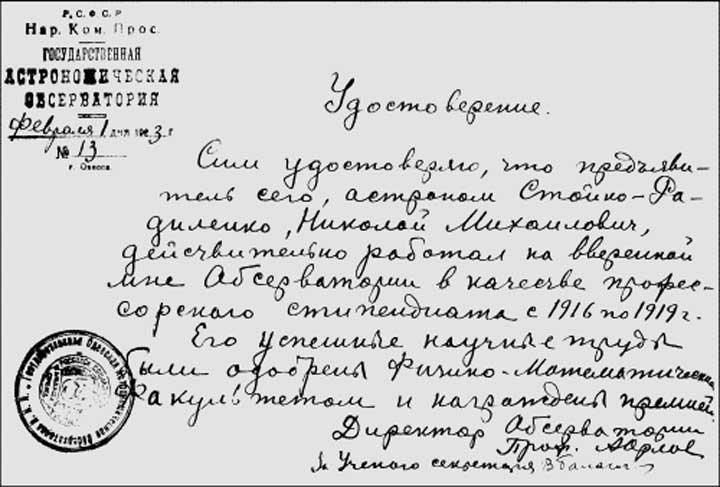 Р.С.Ф.С.Р
Нар. Ком. Прос.
ГОСУДАРСТВЕННАЯ
АСТРОНОМИЧЕСКАЯ
ОБСЕРВАТОРИЯ
Февраля 1 дня 1923 г
№ 13
г. Одесса.
Удостоверение.
Сим удостоверяю, что предъяви-
тель сего, астроном Стойко-Ра-
диленко, Николай Михайлович,
действительно работал на вверенной
мне Обсерватории в качестве профес-
сорского стипендиата с 1916 по 1919 г.
Его успешные научные труды
были одобрены Физико-Математическим
Факультетом и награждены премией.
Директор Обсерватории
Проф. АОрлов
За Ученого секретаря